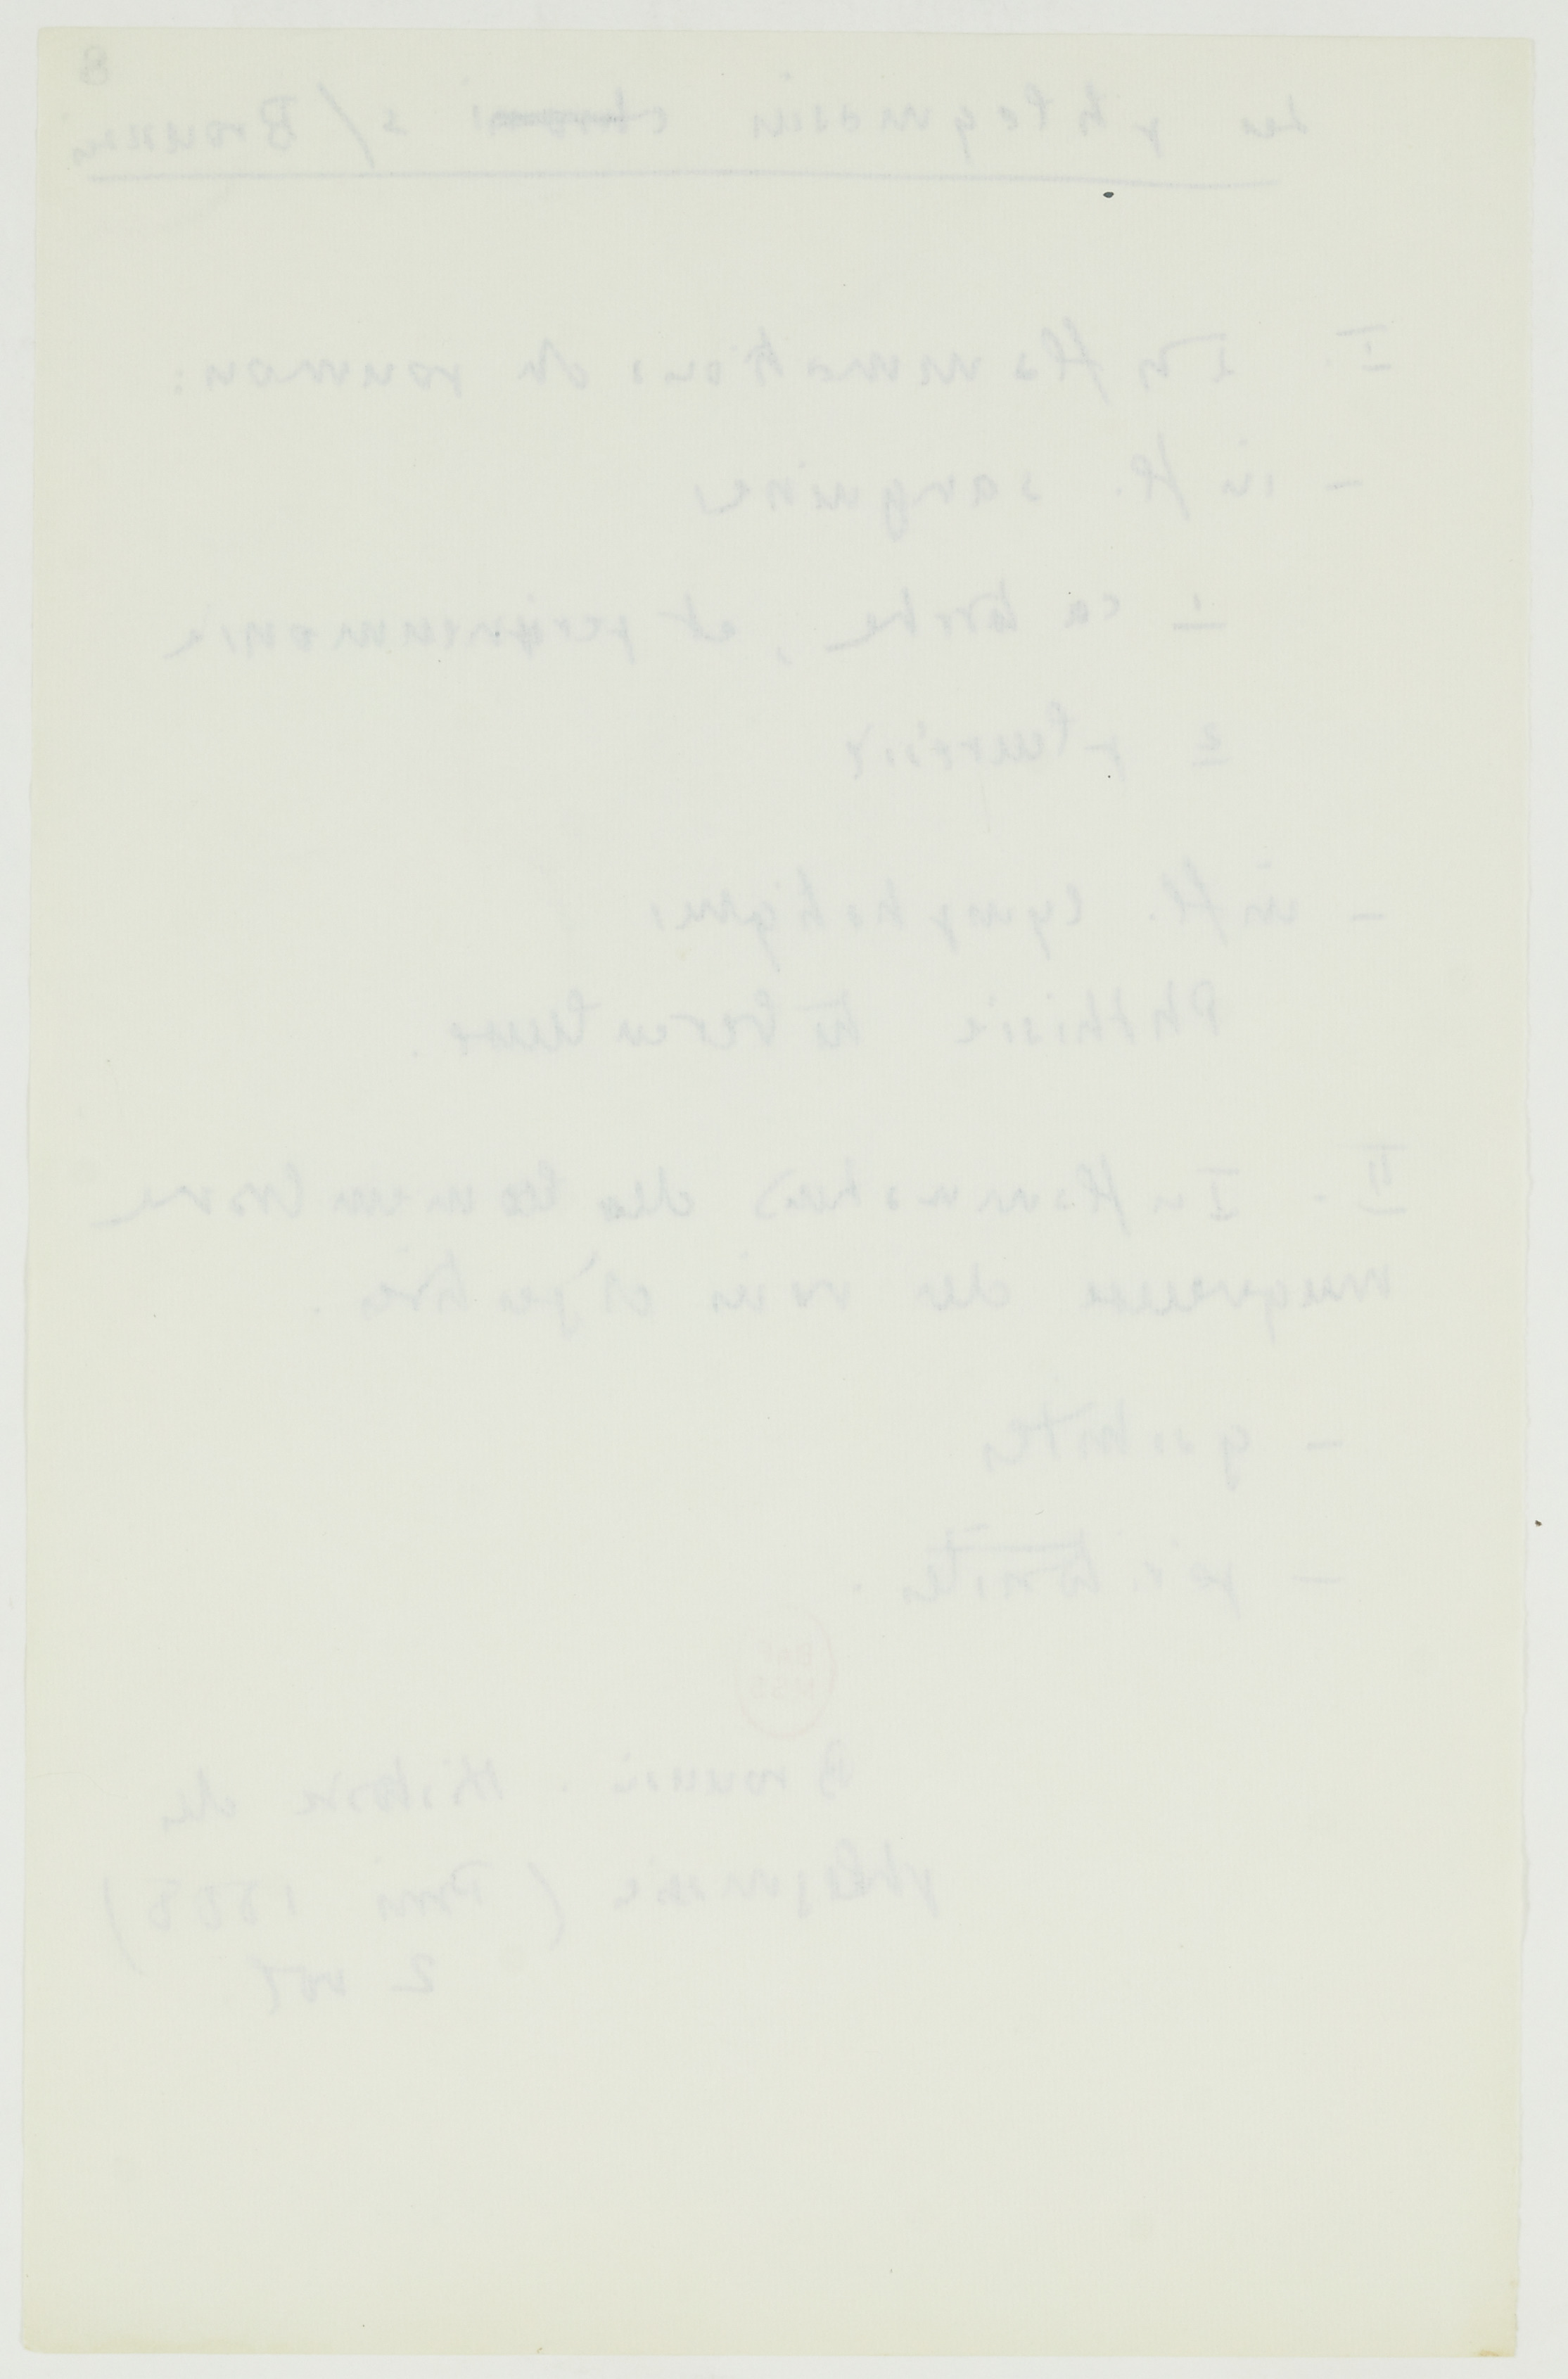 8
Les phlegmasies s/ Broussais
I Inflammations du poumon :
- infl. sanguines
1 catarrhe, et peripneumonie
2 pleurésie
- infl. lymphatiques
Phthisie tuberculeuse.
II. Inflammations des membrane
muqueuse des voies digestives.
- gastrites
- péritonites.
BNF
MSS
Broussais. Histoire des
phlegmasies (Paris 1808)
2 vol